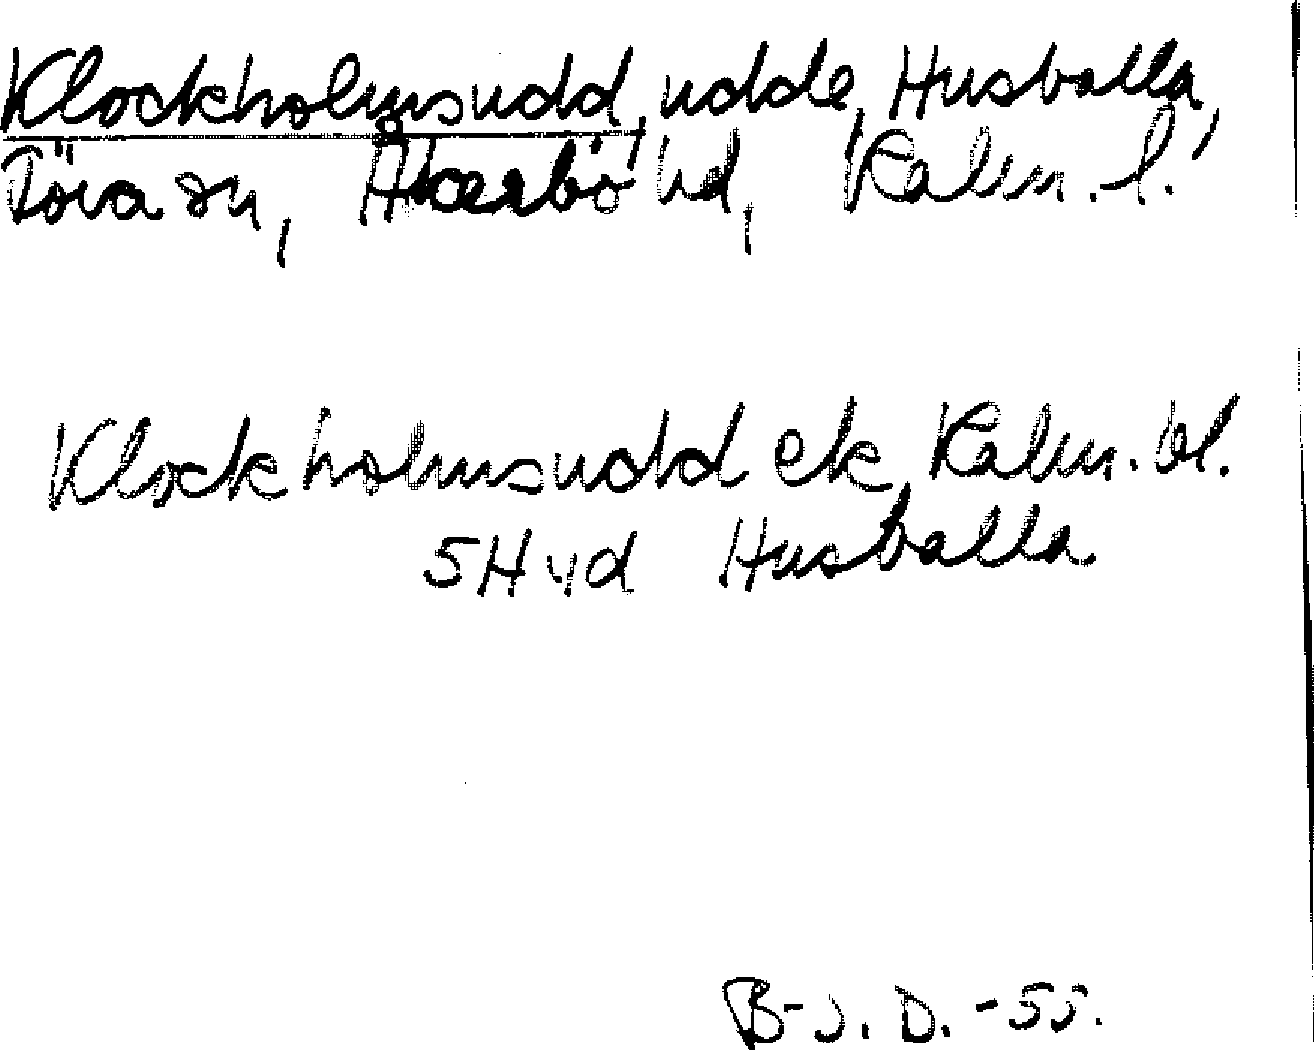 Klockholmsudd, udde, Husballa,
Döva sn, Åkerbo hd, Kalm. l.
Klockholmsudd ek Kalm. bl.
5H vd Husballa
B-J. D. -55.